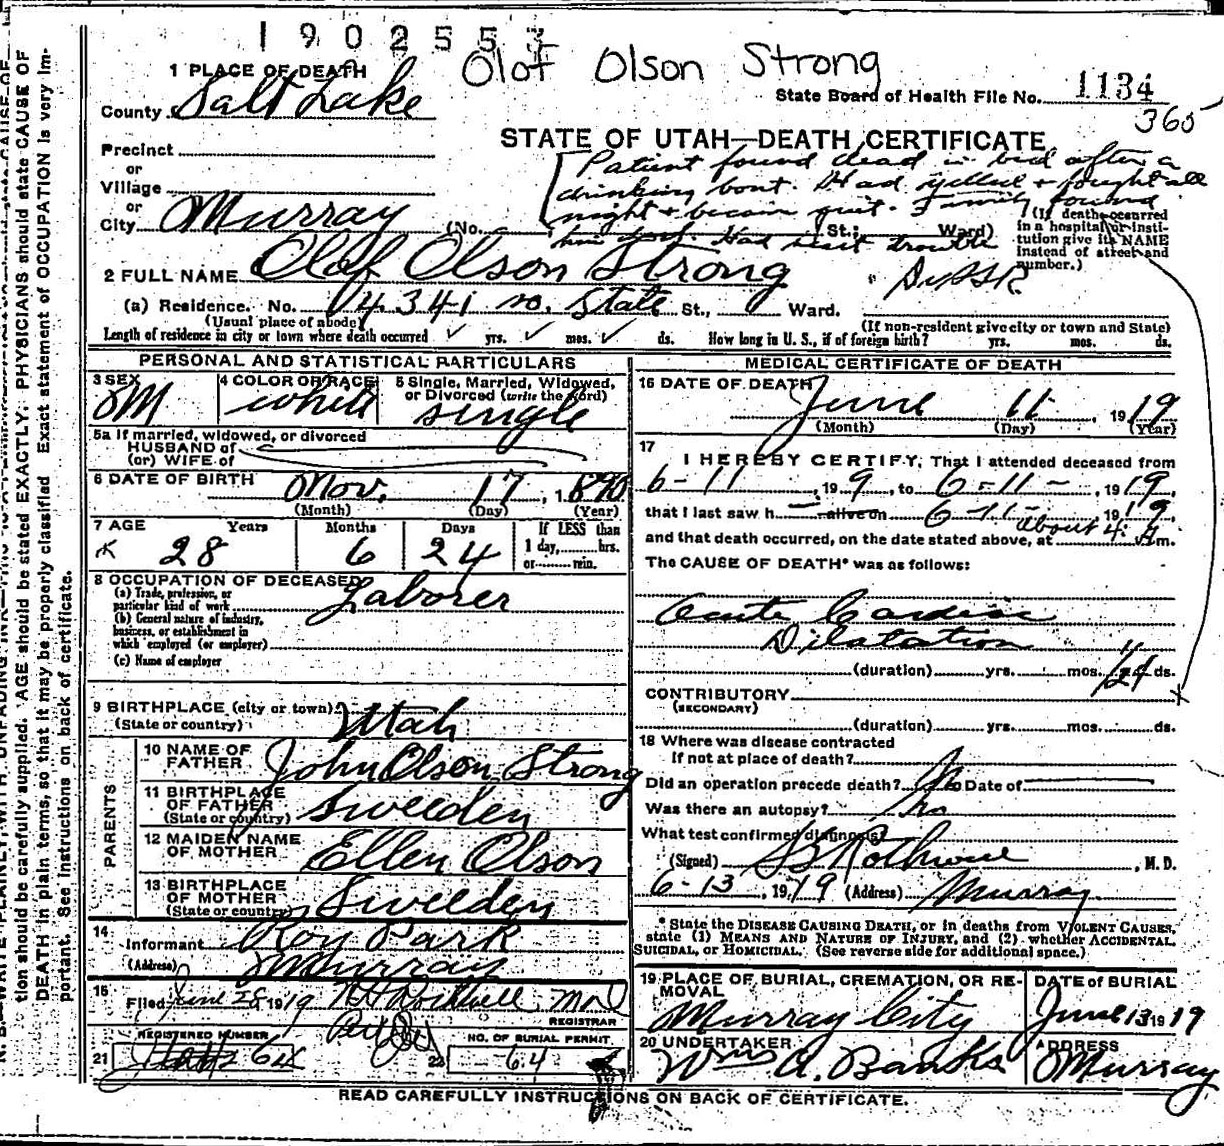 1902553
Olof Olson Strong
1 PLACE OF DEATH
County Salt Lake
State Board of Health File No. 1134
365
STATE OF UTAH—DEATH CERTIFICATE
Precinct
or
Village
or
City Murray (No. St.; Ward)
Patient found dead in bed after a
drinking bout. Had yelled + fought all
night + became quiet. Family found
him dead. Had heart trouble
(If death occurred
in a hospital or insti-
tution give its NAME
instead of street and
number.)
2 FULL NAME Olof Olson Strong
(a) Residence. No. 4341 so. State St., Ward.
(Usual place of abode) (If non-resident give city or town and State)
Length of residence in city or town where death occurred yrs. mos. ds. How long in U. S., if of foreign birth? yrs. mos. ds.
PERSONAL AND STATISTICAL PARTICULARS
3 SEX M
4 COLOR OR RACE white
5 Single, Married, Widowed,
or Divorced (write the word)
single
5a If married, widowed, or divorced
HUSBAND of
(or) WIFE of
6 DATE OF BIRTH Nov. 17, 1890
(Month) (Day) (Year)
7 AGE Years Months Days If LESS than
28 6 24 1 day, hrs.
or min.
8 OCCUPATION OF DECEASED Laborer
(a) Trade, profession, or
particular kind of work
(b) General nature of industry,
business, or establishment in
which employed (or employer)
(c) Name of employer
9 BIRTHPLACE (city or town)
(State or country) Utah
PARENTS
10 NAME OF
FATHER John Olson Strong
11 BIRTHPLACE
OF FATHER
(State or country) Sweeden
12 MAIDEN NAME
OF MOTHER Ellen Olson
13 BIRTHPLACE
OF MOTHER
(State or country) Sweeden
14
Informant Roy Park
(Address) Murray
15
Filed June 28 1919
REGISTRAR
REGISTERED NUMBER
21 64
NO. OF BURIAL PERMIT
22 64
MEDICAL CERTIFICATE OF DEATH
16 DATE OF DEATH June 11, 1919
(Month) (Day) (Year)
17
I HEREBY CERTIFY, That I attended deceased from
6-11, 19 9, to 6-11-, 1919,
that I last saw h alive on 6-11-, 1919
and that death occurred, on the date stated above, at about 4 A m.
The CAUSE OF DEATH* was as follows:
Acute Cardiac
Dilatation
(duration) yrs. mos. 1/24 ds.
CONTRIBUTORY
(SECONDARY)
(duration) yrs. mos. ds.
18 Where was disease contracted
if not at place of death?
Did an operation precede death? No Date of
Was there an autopsy? No
What test confirmed diagnosis?
(Signed) , M. D.
6-13, 1919 (Address) Murray
* State the DISEASE CAUSING DEATH, or in deaths from VIOLENT CAUSES,
state (1) MEANS AND NATURE OF INJURY, and (2) whether ACCIDENTAL,
SUICIDAL, or HOMICIDAL. (See reverse side for additional space.)
19 PLACE OF BURIAL, CREMATION, OR RE-
MOVAL
Murray City
DATE of BURIAL
June 13 1919
20 UNDERTAKER
Wm A. Banks
ADDRESS
Murray
READ CAREFULLY INSTRUCTIONS ON BACK OF CERTIFICATE.
tion should be carefully supplied. AGE should be stated EXACTLY. PHYSICIANS should state CAUSE OF
DEATH in plain terms, so that it may be properly classified Exact statement of OCCUPATION is very im-
portant. See instructions on back of certificate.